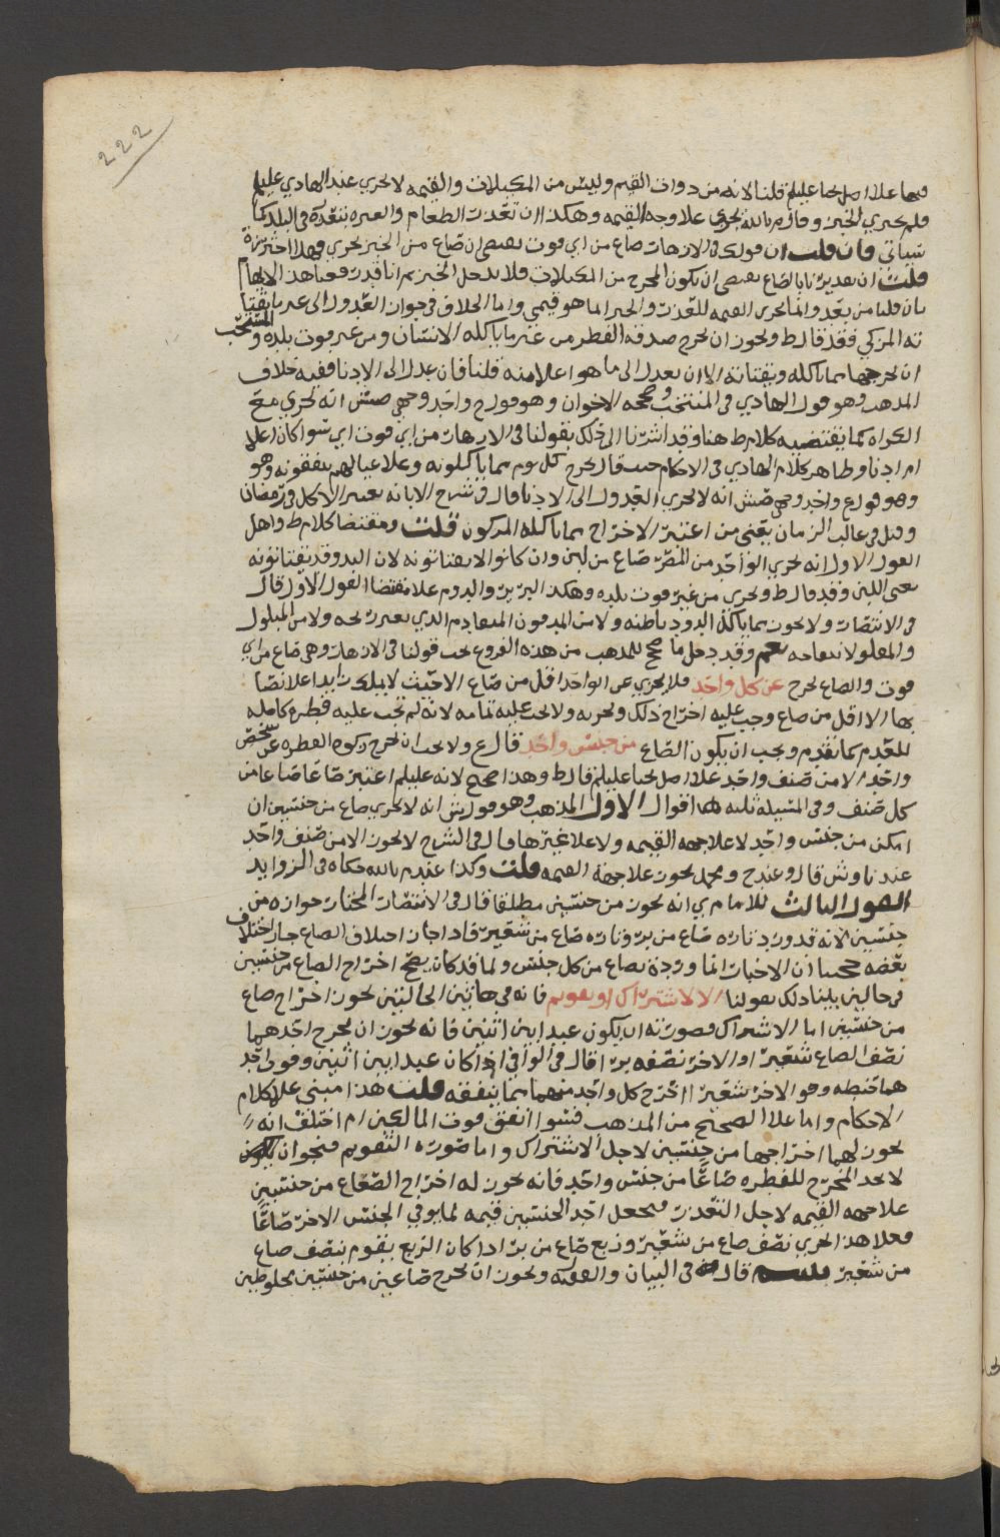 222
فيها علا اصل يحيا عليلم قلنا لانه من ذوات القيم وليس من المكيلات والقيمه لا تجزي عند الهادي عليلم
فلم يجزي الخبز وقال م بالله يجزي علا وجه القيمه وهكذا ان تعذرت الطعام والعبره بتعذره في البلد كما
سياتي فان قلت ان قولك في الازهار صاع من اي قوت يقتضي ان صاع من الخبز يجزي
قلت ان تقديرنا بالصاع يقتضي ان يكون المخرج من المكيلات فلا يدخل الخبز
بان قلنا من بعد وانما تجزي القيمه للتعذر والخبز انما هو قيمي واما الخلاف في جواز العدول الى غير ما يقتا
ته المزكي فقد قال ط ويجوز ان يخرج صدقه الفطر من غير ما ياكله الانسان ومن غير قوت بلده والمستحب
ان يخرجها مما ياكله ويقتاته الا ان يعدل الى ما هو اعلا منه قلنا فان عدل الى الادنا ففيه خلاف
المذهب وهو قول الهادي في المنتخب وصححه الاخوان وهو قول ح واحد وجهي صش انه يجزي مع
الكراه كما يقتضيه كلام ط هنا وقد اشرنا الى ذلك بقولنا في الازهار من اي قوت اي سوا كان اعلا
ام ادنا وظاهر كلام الهادي في الاحكام حيث قال يخرج كل يوم مما ياكلونه وعلا عيالهم ينفقونه وهو
وهو قول ع واحد وجهي صش انه لا يجزي العدول الى الادنا قال في شرح الابانه يعتبر الاكل في رمضان
وقيل في غالب الزمان يعني من اعتبر الاخراج مما ياكله المزكون قلت ومقتضا كلام ط واهل
القول الاول انه يجزي الواحد من المصر صاع من لبن وان كانوا لا يقتاتونه لان البدو قد يقتاتونه
يعني اللبن وقد قال ط ويجزي من غير قوت بلده وهكذا البربر والروم علا مقتضا القول الاول قال
في الانتصار ولا يجوز مما ياكل الدود باطنه ولا من المدفون المتعادم الذي تغيرت ريحه ولا من المبلول
والمقلو لانتفاخه نعم وقد دخل ما صح للمذهب من هذه الفروع تحت قولنا في الازهار وهي صاع من اي
قوت والصاع يخرج عن كل واحد فلا يجزي عن الواحد اقل من صاع الا حيث لا يملك زايدا علا نصا
بها الا اقل من صاع وجب عليه اخراج ذلك ويجزيه ولا يجب عليه تمامه لانه لم تجب عليه فطره كامله
للعدم كما تقدم ويجب ان يكون الصاع من جنس واحد قال ع ولا يجب ان يخرج زكوه الفطره عن شخص
واحد الا من صنف واحد علا اصل يحيا عليلم قال ط وهذا صحيح لانه عليلم اعتبر صاعا صاعا من
كل صنف وفي المسيله ثلثه اقوال الاول المذهب وهو قول ش انه لا يجزي صاع من جنسين ان
امكن من جنس واحد لا علا جهه القيمه ولا علا غيرها وقال في الشرح لا يجوز الا من صنف واحد
عند ن وش قال وعند ح ومحمد يجوز علا جهة القيمه قلت وكذا عند م بالله حكاه في الزوايد
القول الثالث للامام ي انه يجوز من جنسين مطلقا قال في الانتصار المختار جوازه من
جنسين لانه قد ورد تاره صاع من بر وتاره صاع من شعير فاذا جاز اختلاف الصاع جاز اختلاف
بعضه حجتنا ان الاخبار انما وردة بصاع من كل جنس ولما قد كان يصح اخراج الصاع من جنسين
في حالين بينا ذلك بقولنا الا لاشتراك او تقويم فانه في هاتين الحالتين يجوز اخراج صاع
من جنسين اما الاشتراك فصورته ان يكون عبد ابين اثنين فانه يجوز ان يخرج احدهما
نصف الصاع شعيرا والاخر نصفه برا قال في الوافي اذا كان عبد ابين اثنين وقوت احد
هما حنطه وهو الاخر شعير ا اخرج كل واحد منهما مما ينفقه قلت هذا مبني علا كلام
الاحكام واما علا الصحيح من المذهب فسوا اتفق قوت المالكين ام اختلف انه
يجوز لهما اخراجها من جنسين لاجل الاشتراك واما صورة التقويم فنحو ان يكون
لا يجد المخرج للفطره صاعا من جنس واحد فانه يجوز له اخراج الصاع من جنسين
علا جهه القيمه لاجل التعذر فيجعل احد الجنسين قيمه لما يوفي الجنس الاخر صاعا
فعلا هذا يجزي نصف صاع من شعير وربع صاع من بر اذا كان الربع يقوم بنصف صاع
من شعير قال في البيان والفقيه ويجوز ان يخرج صاعين من جنسين مخلوطين